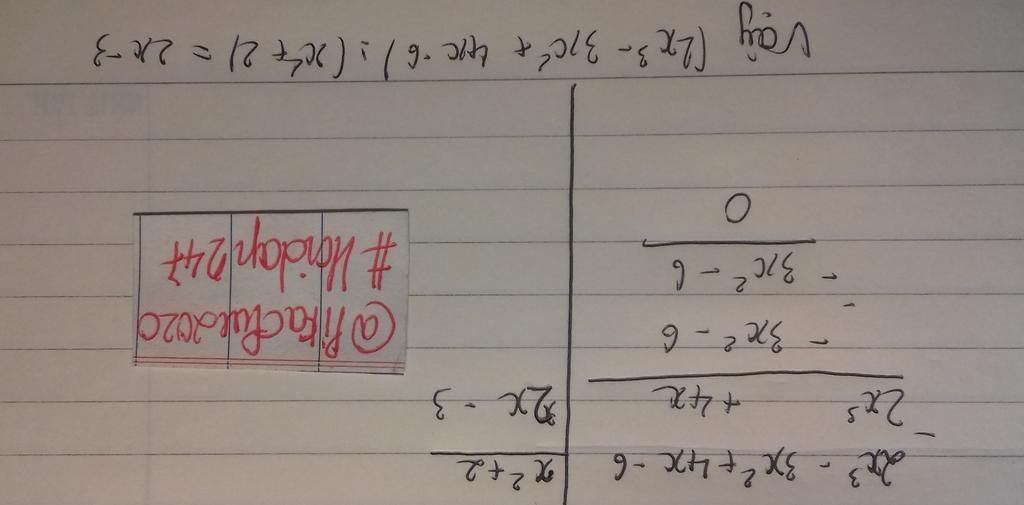 2x³ - 3x² + 4x - 6 | x² + 2
-
2x³ + 4x | 2x - 3
- 3x² - 6
-
- 3x² - 6
0
@Pikachue2020
#Hoidap247
Vậy (2x³ - 3x² + 4x - 6) : (x² + 2) = 2x - 3